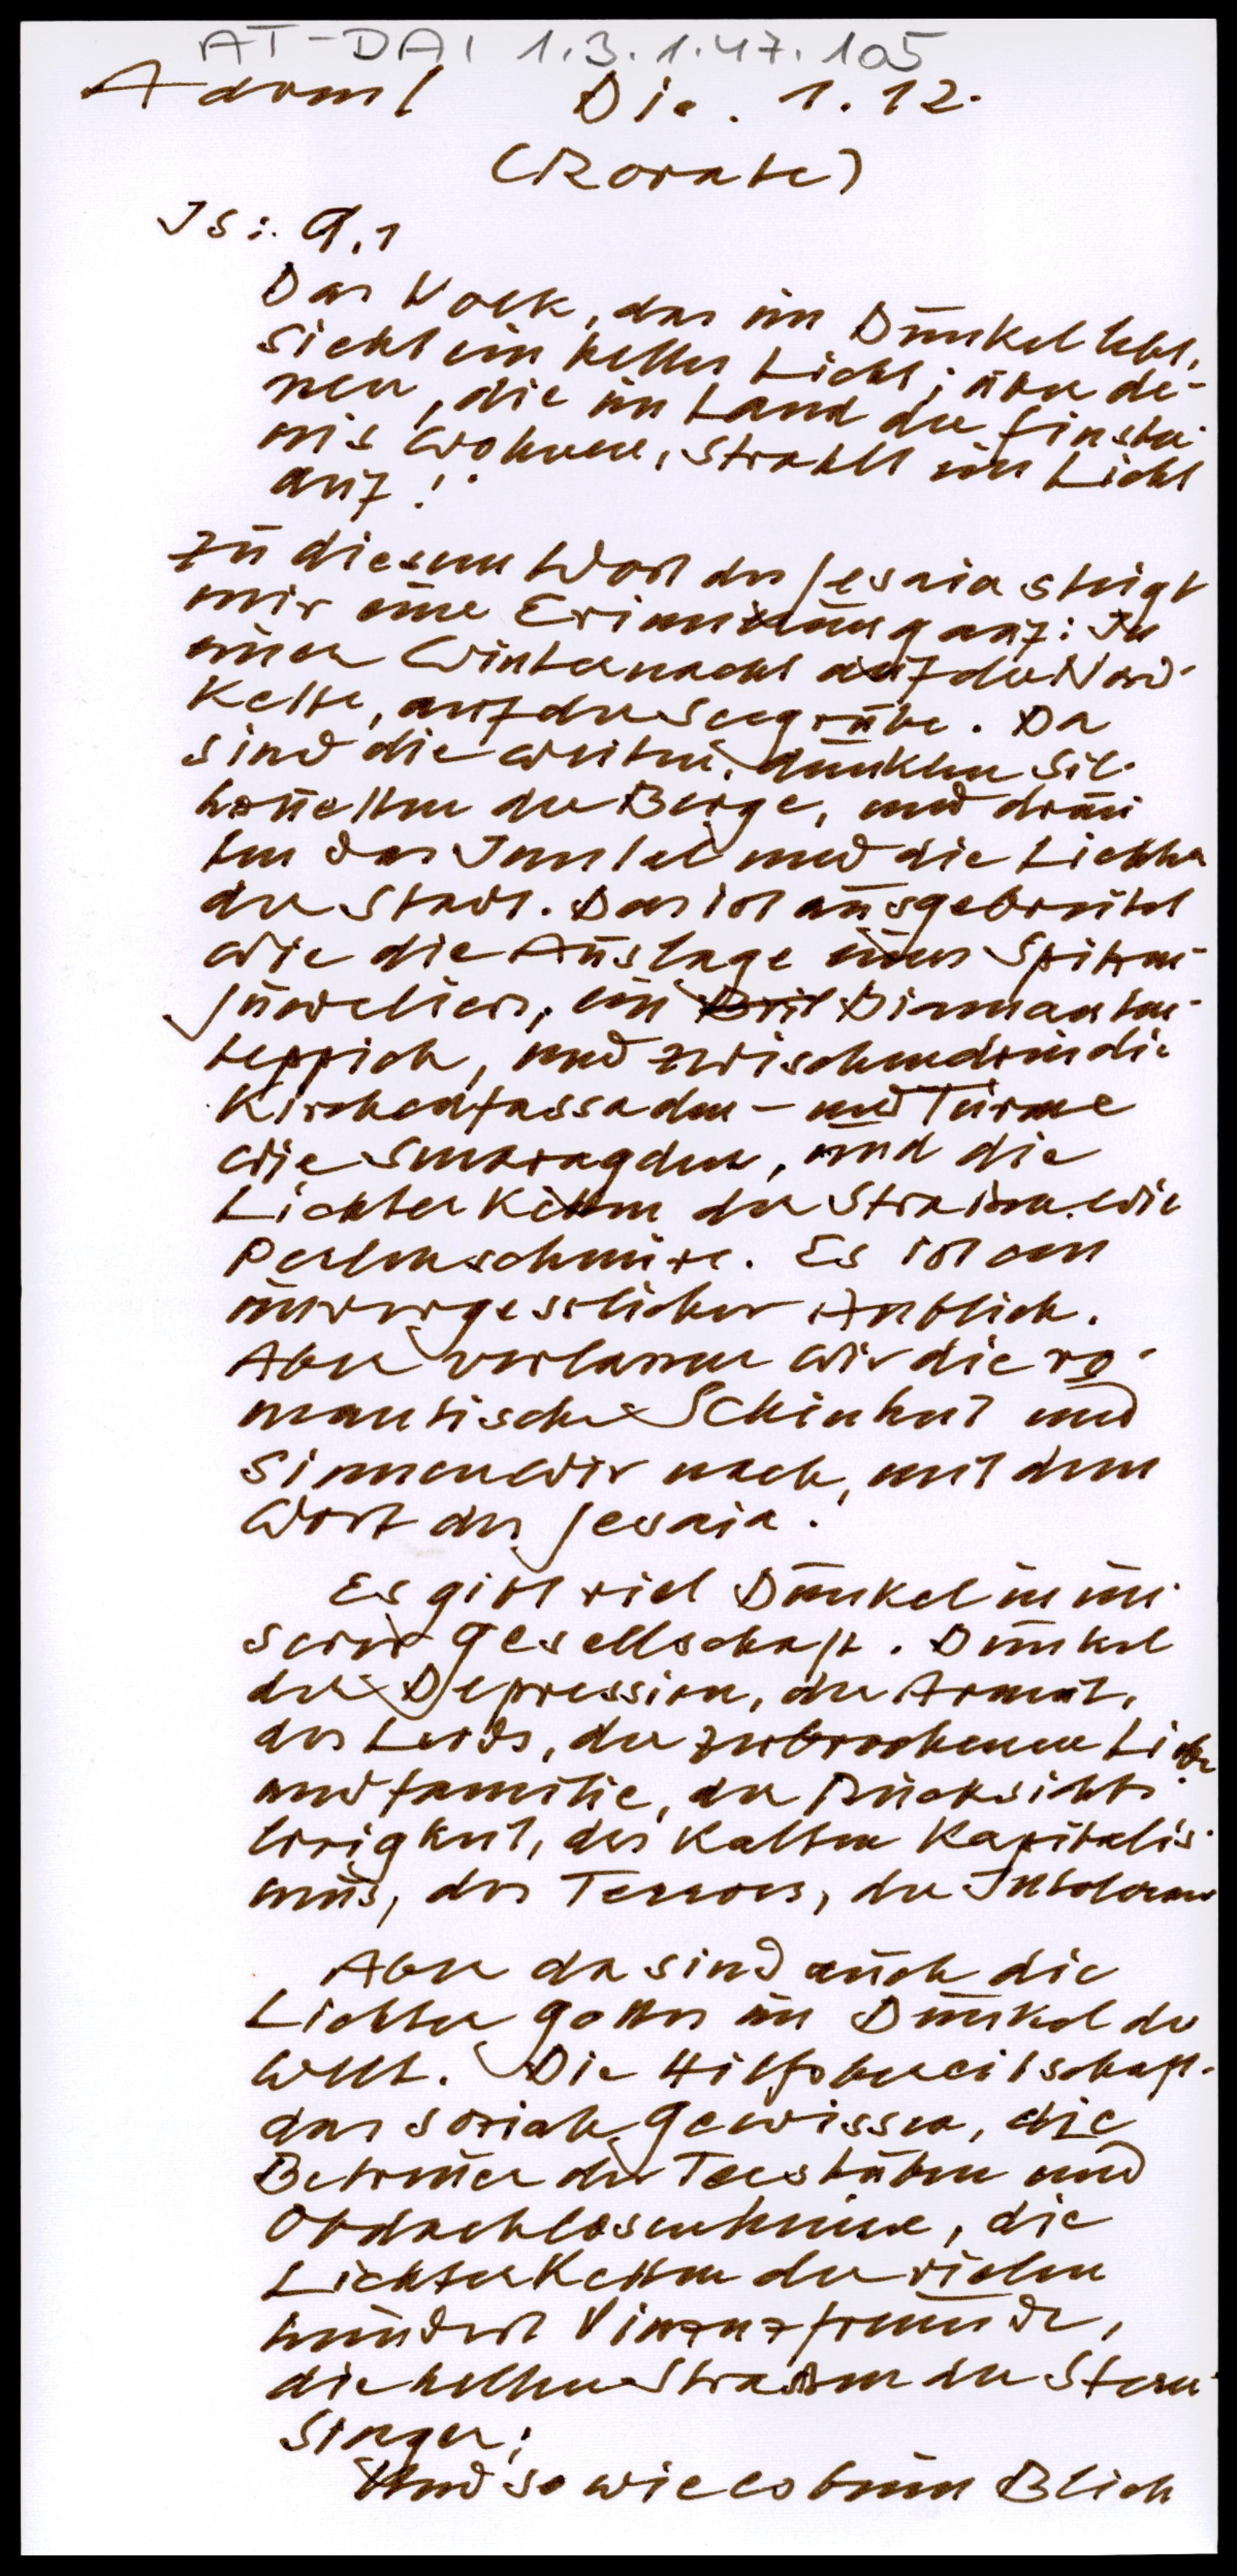 AT-DAI 1.3.1.47.105
Advent Die. 1.12.
(Rorate)
Is: 9,1
Das Volk, das im Dunkel lebt,
sieht ein helles Licht; über de-
nen, die im Land der Finster-
nis wohnen, strahlt ein Licht
auf!
Zu diesem Wort des Jesaia steigt
mir eine Erinnerung auf: In
einer Winternacht auf der Nord-
kette, auf der Seegrube. Da
sind die weiten, dunklen Sil-
houetten der Berge, und drun
ten das Inntal und die Lichter
der Stadt. Das ist ausgebreitet
wie die Auslage eines Spitzen-
juweliers, ein Bril Diamanten-
teppich, und zwischendrin die
Kirchenfassaden- und Türme
wie Smaragden, und die
Lichterketten der Strassen wie
Perlenschnüre. Es ist ein
unvergesslicher Anblick.
Aber verlassen wir die ro-
mantische Schönheit und
sinnen wir nach, mit dem
Wort des Jesaia.
Es gibt viel Dunkel in un-
serer Gesellschaft. Dunkel
der Depression, der Armut,
des Leids, der zerbrochenen Liebe
und Familie, der Rücksichts-
losigkeit, des kalten Kapitalis-
mus, des Terrors, der Intoleranz
Aber da sind auch die
Lichter Gottes im Dunkel der
Welt. Die Hilfsbereitschaft.
das soziale Gewissen, die
Betreuer der Teestuben und
Obdachlosenheime, die
Lichterketten der vielen
hundert Vinzenzfreunde,
die hellen Strassen der Stern-
singer;
Und so wie es beim Blick